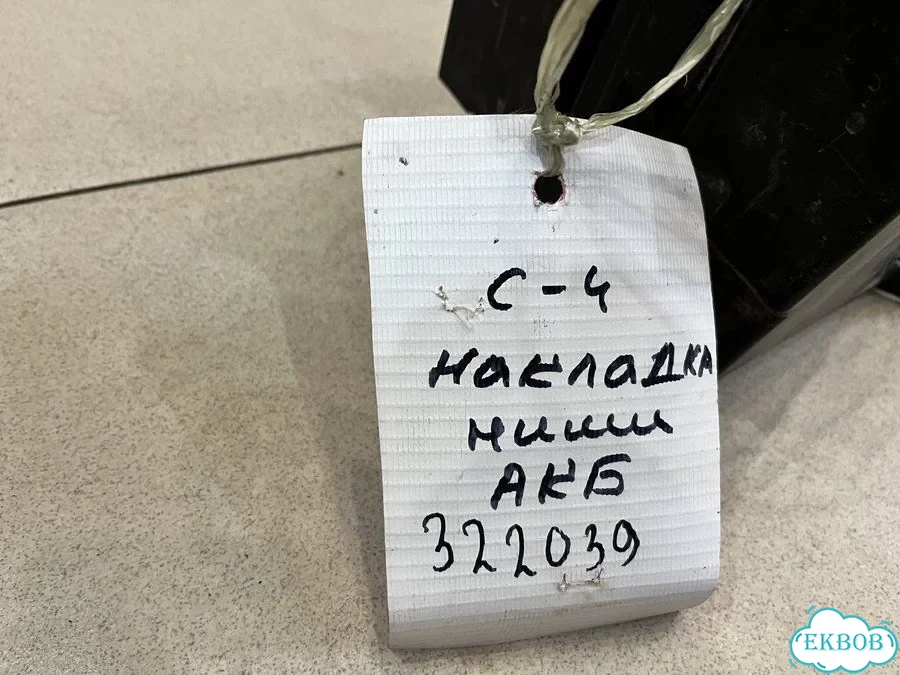 С-4
накладка
ниши
АКБ
322039
EKBOB